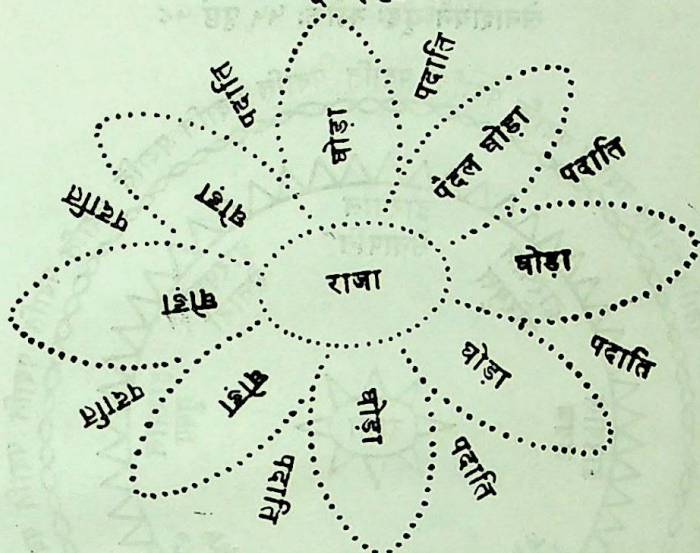 पदाति
घोड़ा
पदाति
पैदल घोड़ा
पदाति
घोड़ा
पदाति
घोड़ा
पदाति
घोड़ा
पदाति
घोड़ा
पदाति
घोड़ा
पदाति
घोड़ा
राजा